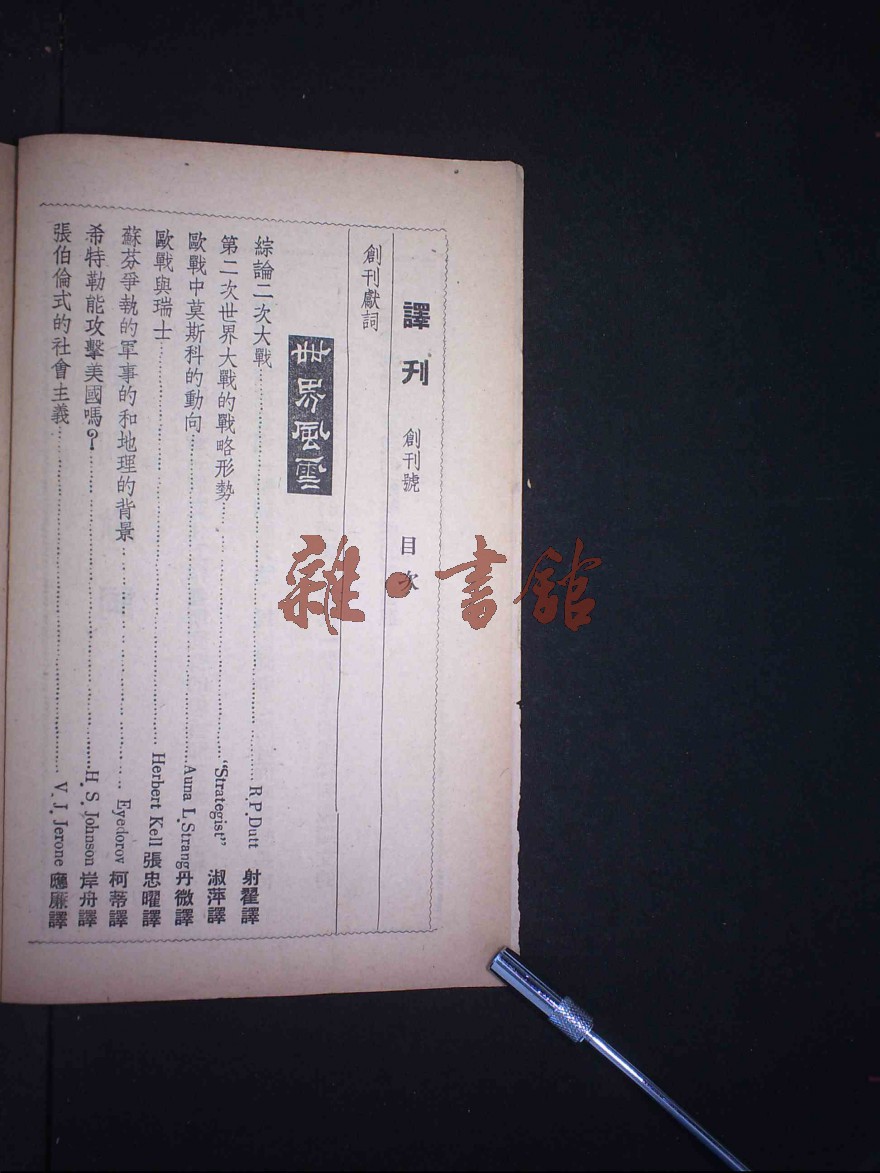 譯刊 創刊號 目次
創刊獻詞
世界風雲
綜論二次大戰……R.P.Dutt 射翟譯
第二次世界大戰的戰略形勢……"Strategist" 淑萍譯
歐戰中莫斯科的動向……Auna L.Strang 丹微譯
歐戰與瑞士……Herbert Kell 張忠曜譯
蘇芬爭執的軍事的和地理的背景……Eyedorov 柯蒂譯
希特勒能攻擊美國嗎？……H.S.Johnson 岸舟譯
張伯倫式的社會主義……V.J.Jerone 應廉譯
雜·書館